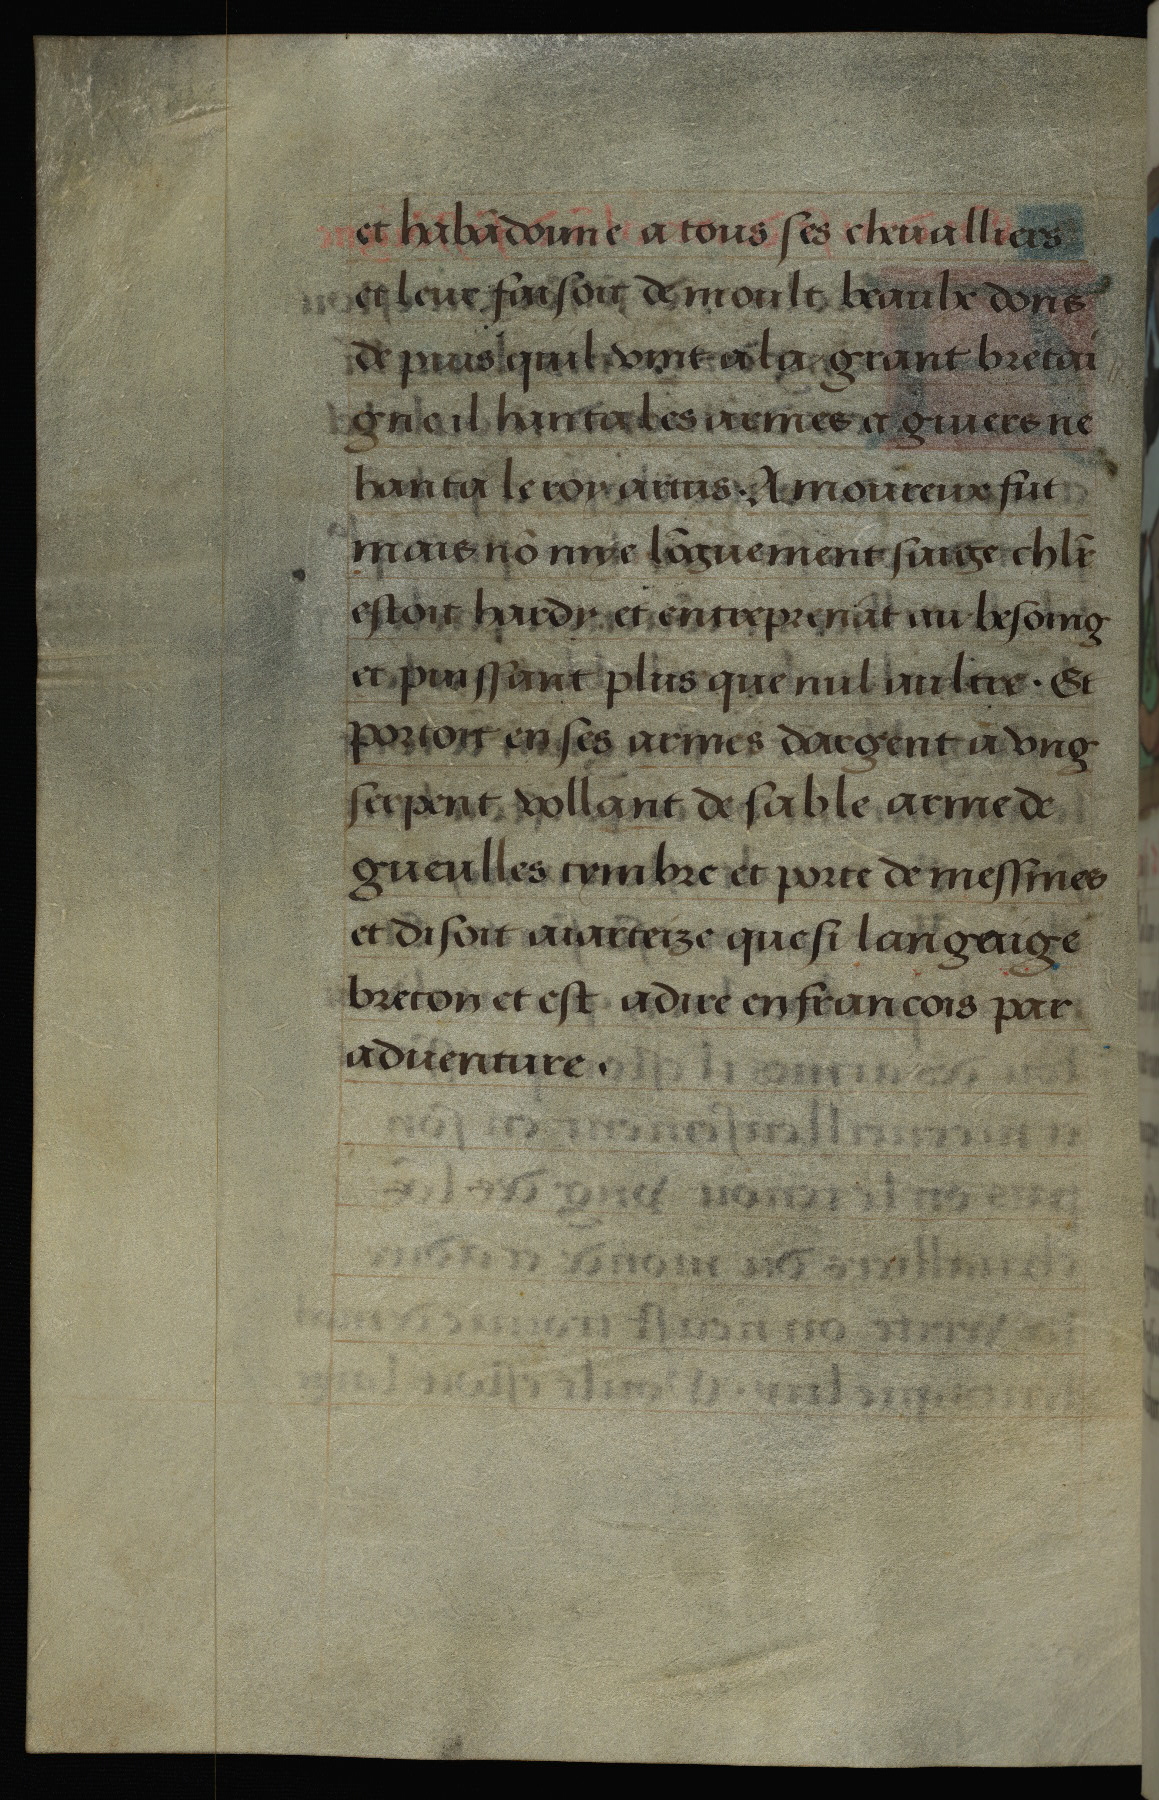 et habādonne a tous ses chevalliers
et leur faisoit de moult beaulx dons
de puis quil vint a la grant bretai
gne il hanta les armes et guieres ne
hanta le roy artus. Amoureux fut
mais nō mye lōguement saige chlr̄
estoit hardy et entreprenāt au besoing
et puissant plus que nul aultre. Et
portoit en ses armes dargent a vng
serpent vollant de sable arme de
gueulles tymbre et porte de mesmes
et disoit auarteize quesi langeaige
breton et est adire en francois par
aduenture.